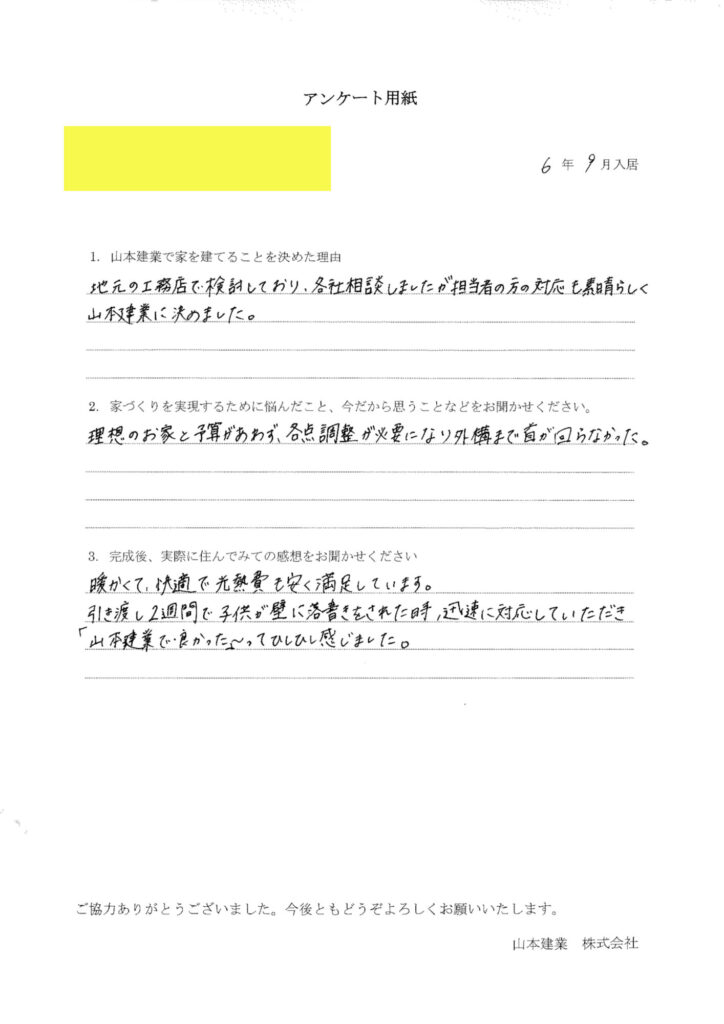 アンケート用紙
6年 9月入居
1. 山本建業で家を建てることを決めた理由
地元の工務店で検討しており、各社相談しましたが担当者の方の対応も素晴らしく
山本建業に決めました。
2. 家づくりを実現するために悩んだこと、今だから思うことなどをお聞かせください。
理想のお家と予算があわず、各点調整が必要になり外構まで首が回らなかった。
3. 完成後、実際に住んでみての感想をお聞かせください
暖かくて、快適で光熱費も安く満足しています。
引き渡し2週間で子供が壁に落書きをされた時、迅速に対応していただき
「山本建業で良かった」〜ってひしひし感じました。
ご協力ありがとうございました。今後ともどうぞよろしくお願いいたします。
山本建業 株式会社